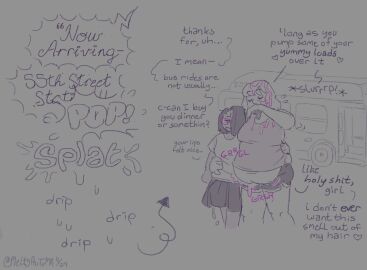 "Now
Arriving-
55th Street
Stati
POP!
Splat
drip
drip
drip
thanks
for, uh...
I mean-
bus rides are
not usually..
c-can I buy
you dinner
or somethin?
your lips
felt nice..
'long as you
pump some of your
yummy loads
over it
*slurrrp!*
GRGL
GRGGL
like
holy shit,
girl
i don't ever
want this
smell out of
my hair